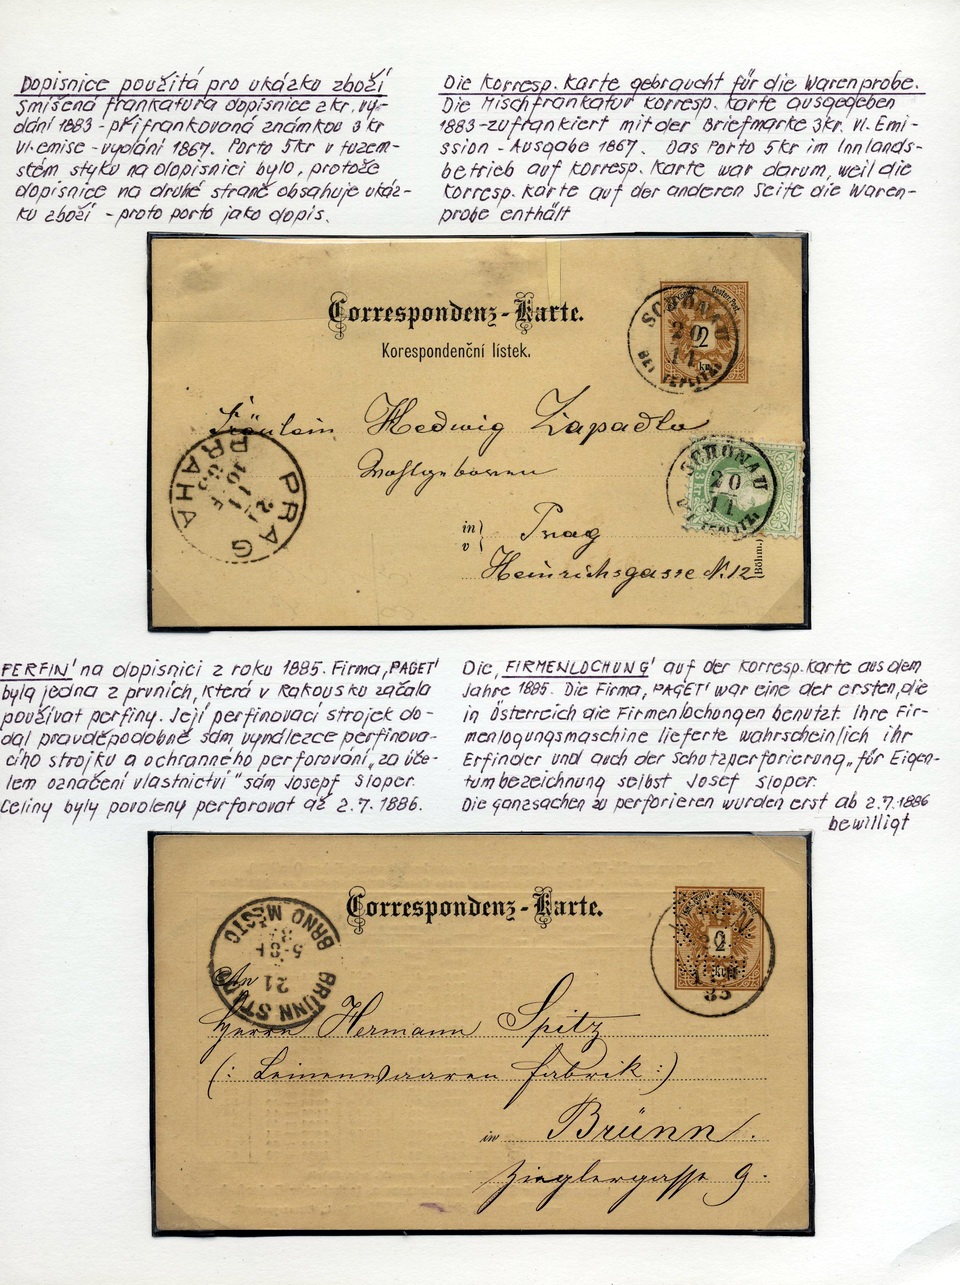 Dopisnice použitá pro ukázku zboží
Smíšená frankatura dopisnice 2 kr, vy-
dání 1883 - přifrankovaná známkou 3 kr
VI. emise - vydání 1867. Porto 5kr v tuzem-
stém styku na dopisnici bylo, protože
dopisnice na druhé straně obsahuje ukáz-
ku zboží - proto porto jako dopis.
Die Korresp. Karte gebraucht für die Warenprobe.
Die Mischfrankatur Korresp. Karte ausgegeben
1883-zufrankiert mit der Briefmarke 3kr. VI. Emi-
ssion - Ausgabe 1867. Das Porto 5kr im Innlands-
betrieb auf Korresp. Karte war darum, weil die
Korresp. Karte auf der anderen Seite die Waren-
probe enthält
Correspondenz-Karte.
Korespondenční lístek.
2
SCHÖNAU
20
11
BEI TEPLITZ
Fräulein Hedwig Zapadlo
Wohlgeboren
in
v
Prag
Heinrichsgasse N. 12
(Böhm.)
SCHÖNAU
20
11
BEI TEPLITZ
PRAG
PRAHA
'PERFIN' na dopisnici z roku 1885. Firma 'PAGET'
byla jedna z prvních, která v Rakousku začala
používat perfiny. Její perfinovací strojek do-
dal pravděpodobně sám vyndlezce perfinova-
cího strojku a ochranného perforování „za úče-
lem označení vlastnictví" sám Josepf Sloper.
Celiny byly povoleny perforovat až 2.7.1886.
Die 'FIRMENLOCHUNG' auf der Korresp. Karte aus dem
Jahre 1885. Die Firma 'PAGET' war eine der ersten, die
in Österreich die Firmenlochungen benutzt. Ihre Fir-
menlogungsmaschine lieferte wahrscheinlich ihr
Erfinder und auch der Schutzperforierung „für Eigen-
tumbezeichnung selbst Josef Sloper.
Die Ganzsachen zu perforieren wurden erst ab 2.7.1886
bewilligt
Correspondenz-Karte.
2
BRÜNN STADT
BRNO MĚSTO
21
An
Herrn Hermann Spitz
(: Leinenwaaren Fabrik :)
in Brünn.
Zieglergasse 9.